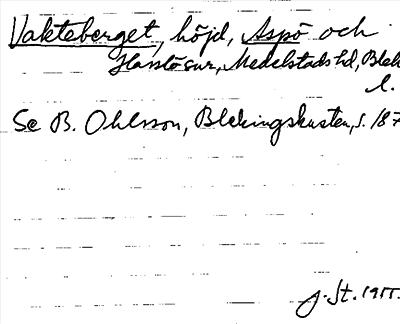 Vakteberget, höjd, Aspö och
Hasslö sur, Medelstads hd, Blek
l.
Se B. Ohlsson, Blekingskusten, s. 187
J. St. 1955.